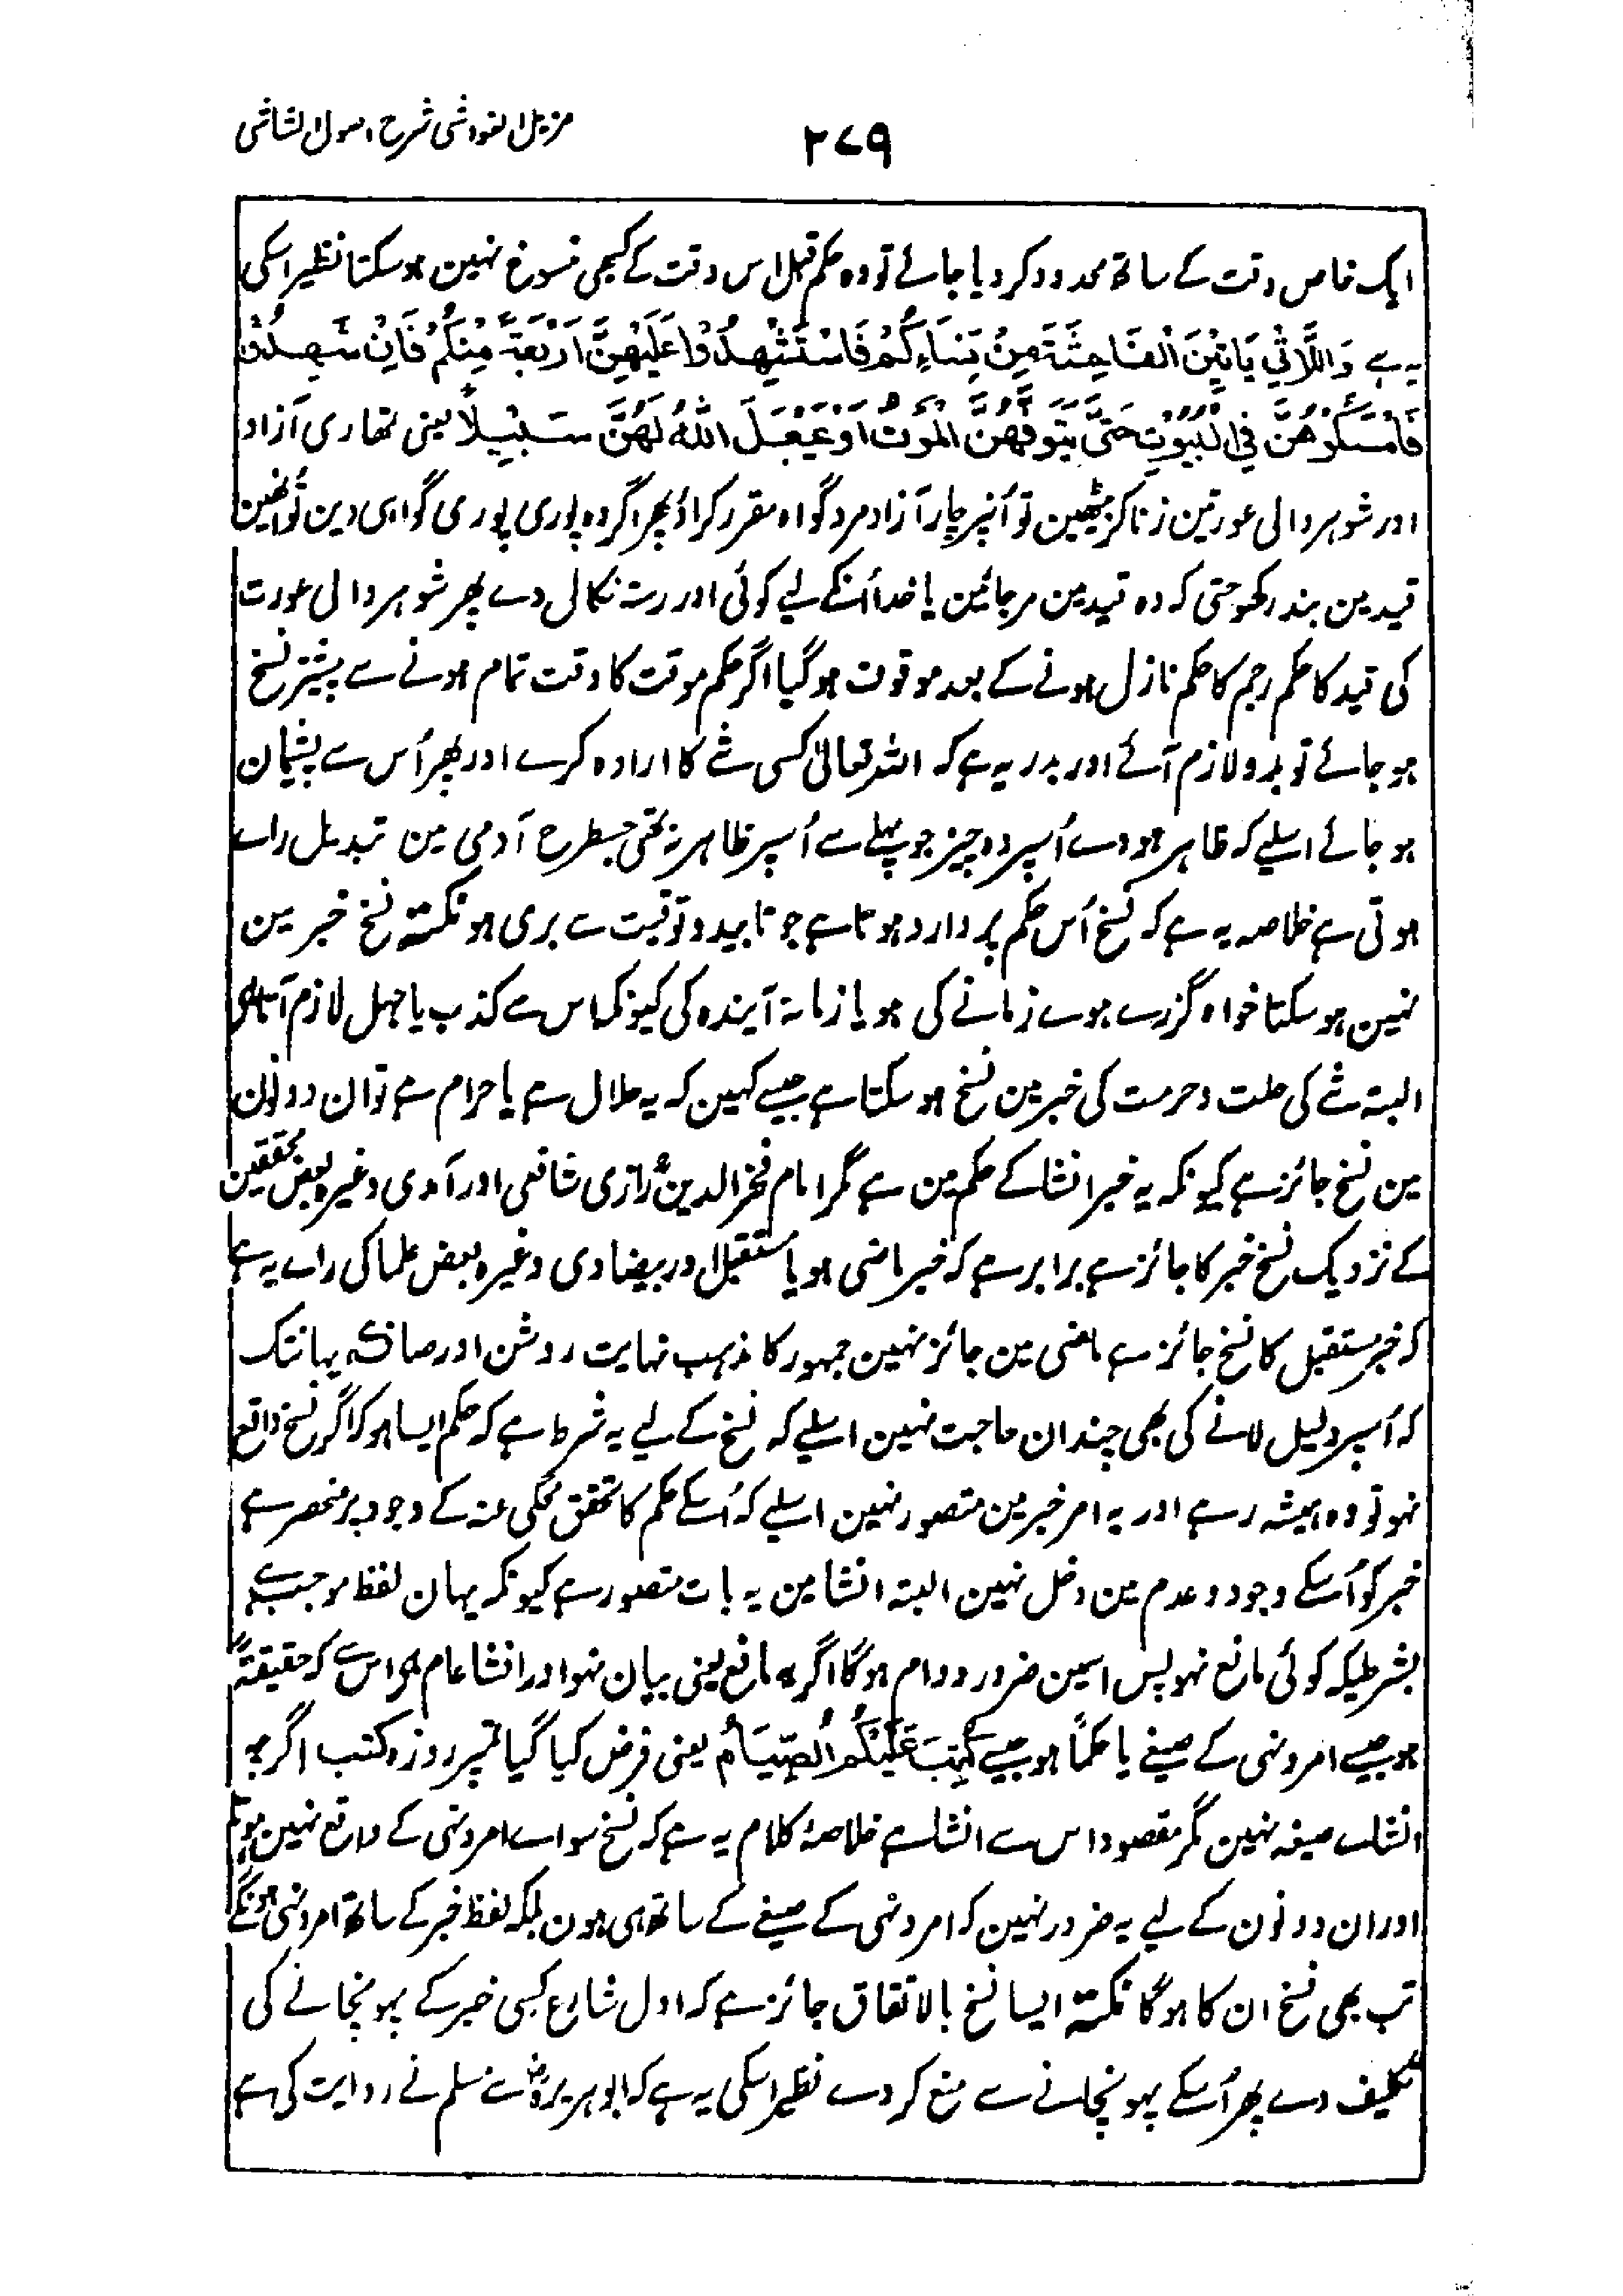 مزیل الغواشی شرح اصول الشاشی
۲۷۹
ایک خاص وقت کے ساتھ محدود کر دیا جائے تو وہ حکم قبل اس وقت کے کبھی منسوخ نہین ہو سکتا نظیر اسکی
یہ ہے وَاللَّاتِي يَأْتِيْنَ الْفَاحِشَةَ مِنْ نِسَاءِكُمْ فَاسْتَشْهِدُوْا عَلَيْهِنَّ اَرْبَعَةً مِنْكُمْ فَاِنْ شَهِدُوْا
فَاَمْسِكُوْهُنَّ فِي الْبُيُوْتِ حَتّٰى يَتَوَفّٰهُنَّ الْمَوْتُ اَوْ يَجْعَلَ اللّٰهُ لَهُنَّ سَبِيْلًا یعنی تمھاری آزاد
اور شوہر والی عورتین زنا کر بیٹھین تو اُنپر چار آزاد مرد گواہ مقرر کراؤ پھر اگر وہ پوری پوری گواہی دین تو اُنھین
قید مین بند رکھو حتی کہ وہ قید مین مر جائین یا خدا اُنکے لیے کوئی اور رستہ نکال دے پھر شوہر والی عورت
کی قید کا حکم رجم کا حکم نازل ہونے کے بعد موقوف ہو گیا اگر حکم موقت کا وقت تمام ہونے سے پیشتر نسخ
ہو جائے تو بدو لازم آئے اور بدر یہ ہے کہ اللہ تعالیٰ کسی شے کا ارادہ کرے اور پھر اُس سے پشیمان
ہو جائے اسلیے کہ ظاہر ہووے اُسپر وہ چیز جو پہلے سے اُسپر ظاہر نہ تھی جسطرح آدمی مین تبدیل راے
ہوتی ہے خلاصہ یہ ہے کہ نسخ اُس حکم پر وارد ہوتا ہے جو تابید و توقیت سے بری ہو نکتہ نسخ خبر مین
نہین ہو سکتا خواہ گزرے ہوے زمانے کی ہو یا زمانۂ آیندہ کی کیونکہ اس سے کذب یا جہل لازم آتا ہے
البتہ شے کی حلت و حرمت کی خبر مین نسخ ہو سکتا ہے جیسے کہین کہ یہ حلال ہے یا حرام ہے تو ان دونون
مین نسخ جائز ہے کیونکہ یہ خبر انشا کے حکم مین ہے مگر امام فخر الدین رازی شافعی اور آمدی وغیرہ بعض محققین
کے نزدیک نسخ خبر کا جائز ہے برابر ہے کہ خبر ماضی ہو یا مستقبل اور بیضاوی وغیرہ بعض علما کی راے یہ ہے
کہ خبر مستقبل کا نسخ جائز ہے ماضی مین جائز نہین جمہور کا مذہب نہایت روشن اور صاف ہے یہانتک
کہ اُسپر دلیل لانے کی بھی چندان حاجت نہین اسلیے کہ نسخ کے لیے یہ شرط ہے کہ حکم ایسا ہو کہ اگر نسخ واقع
نہو تو وہ ہمیشہ رہے اور یہ امر خبر مین متصور نہین اسلیے کہ اُسکے حکم کا تحقق محکی عنہ کے وجود پر منحصر ہے
خبر کو اُسکے وجود و عدم مین دخل نہین البتہ انشا مین یہ بات متصور ہے کیونکہ یہان لفظ موجب ہے
بشرطیکہ کوئی مانع نہو پس اسمین ضرور دوام ہوگا اگر یہ مانع یعنی بیان نہو اور انشا عام ہے اس سے کہ حقیقۃً
ہو جیسے امر و نہی کے صیغے یا حکمًا ہو جیسے كُتِبَ عَلَيْكُمُ الصِّيَامُ یعنی فرض کیا گیا تمپر روزہ کتب اگرچہ
انشا کے صیغہ نہین مگر مقصود اس سے انشا ہے خلاصۂ کلام یہ ہے کہ نسخ سواے امر و نہی کے واقع نہین ہوتا
اور ان دونون کے لیے یہ ضرور نہین کہ امر و نہی کے صیغے کے ساتھ ہی ہون بلکہ لفظ خبر کے ساتھ امر و نہی ہونگے
تب بھی نسخ ان کا ہوگا نکتہ ایسا نسخ بالاتفاق جائز ہے کہ اول شارع کسی خبر کے پہونچانے کی
تکلیف دے پھر اُسکے پہونچانے سے منع کر دے نظیر اسکی یہ ہے کہ ابو ہریرہؓ سے مسلم نے روایت کی ہے